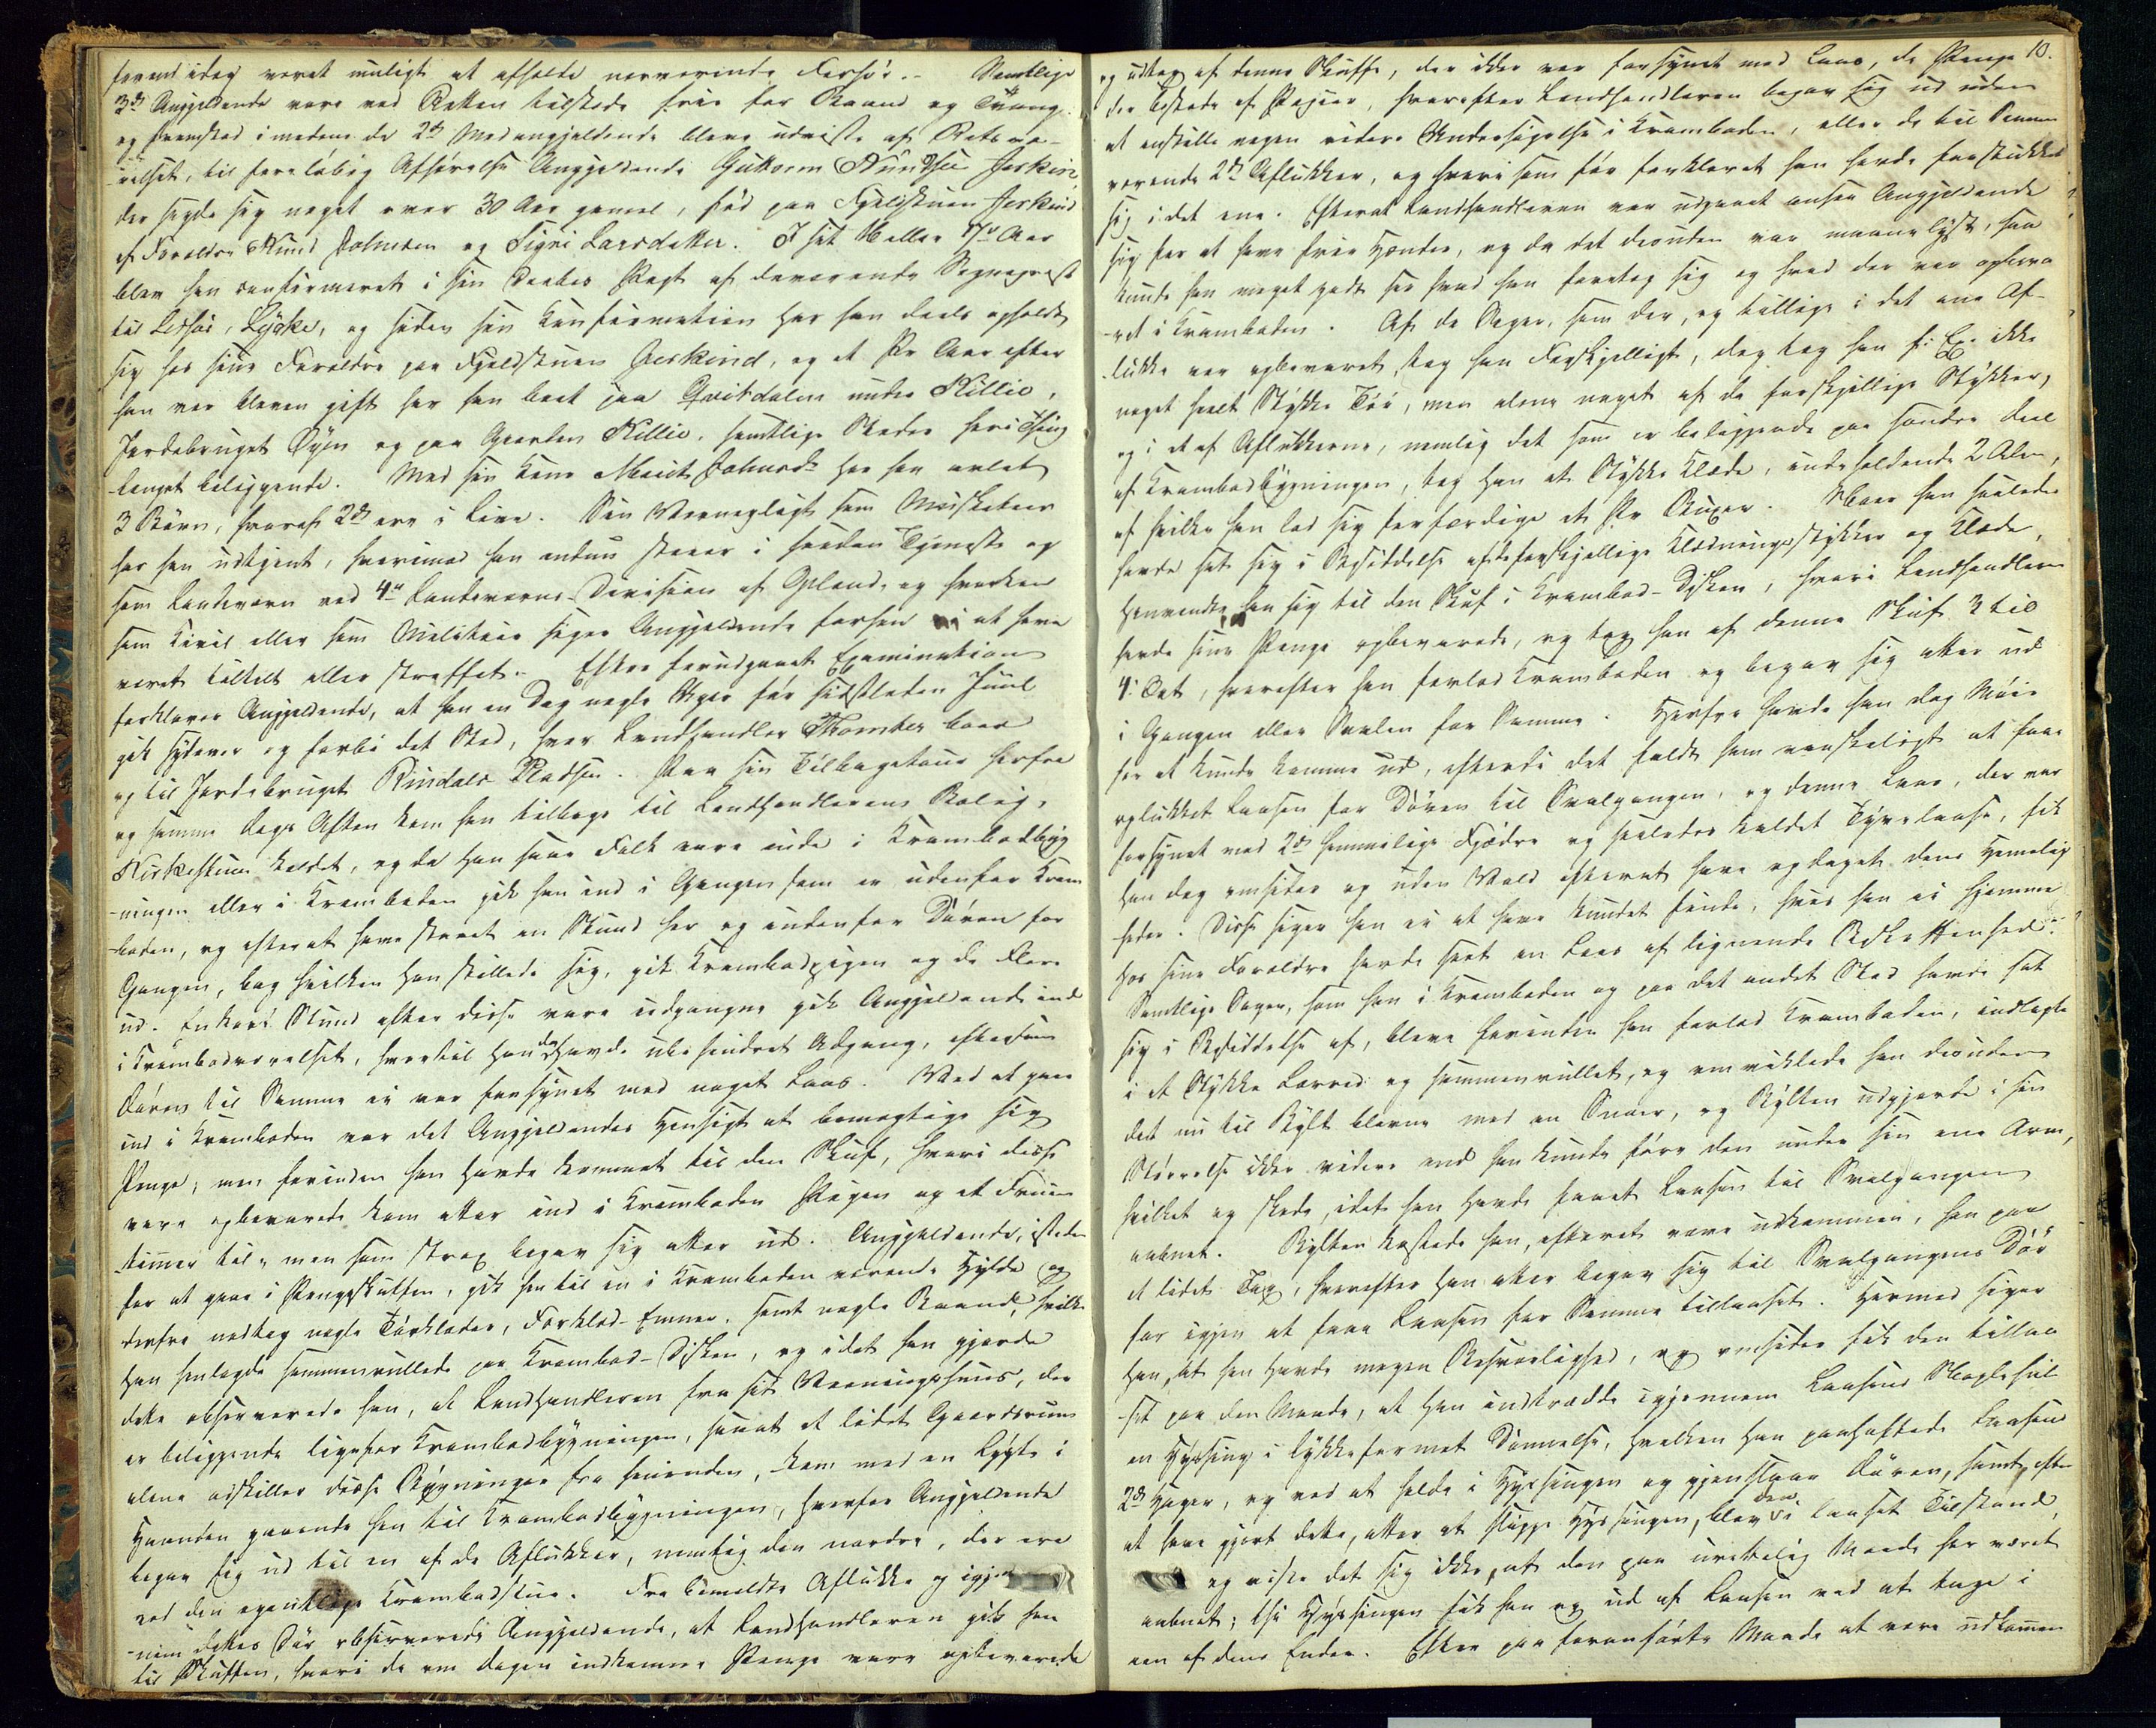 forend idag været muligt at afholde nærværende Forhør. – Samtlige
3de Angjeldende vare ved Retten tilstede frie for Baand og Tvang
og fremstod imedens de 2de Medangjeldende bleve udviste af Retsvæ-
relset, til foreløbig Afhørelse Angjeldende Guttorm Knudsen Jerkin,
der sagde sig noget over 30 Aar gammel, fød paa Fjeldstuen Jerkind
af Forældre Knud Johnsen og Sigri Larsdatter. I sit 17de Aar
blev han confirmeret i sin Daabes Pagt af daværende Sognepræst
til Lessøe, Lyche, og siden sin Konfirmation har han deels opholdt
sig hos sine Forældre paa Fjeldstuen Jerkind, og et Par Aar efter
han var bleven gift har han boet paa Qvitdalen under Killie,
Jordebruget Øyen og paa Gaarden Killie, samtlige Steder heri Thing-
lauget beliggende. Med sin Kone Marit Johnsdr har han avlet
3 Børn, hvoraf 2de ere i Live. Sin Værnepligt som Musketeer
har han udtjent, hvorimod han endnu staaer i saadan Tjeneste og
som Landeværn ved 4de Landeværns-Division af Opland, og hverken
som Civil eller som Militair siger Angjeldende forhen at have
været tiltalt eller straffet. – Efter forudgaaet Examination
forklarer Angjeldende, at han en Dag nogle Uger før sidstleden Juul
gik sydover og forbi det Sted, hvor Landhandler Thomter boer
og til Jordebruget Rindals Pladsen. Paa sin Tilbagetour herfra
og samme Dags Aften kom han tilbage til Landhandlerens Bolig,
Kirkestuen kaldet, og da han saae Folk være inde i Krambodbyg-
ningen eller i Kramboden gik han ind i Gangen som er udenfor Kram-
boden, og efterat have staaet en Stund her og indenfor Døren for
Gangen, bag hvilken han stillede sig, gik Krambodpigen og de Flere
ud. En kort Stund efter disse vare udgangne gik Angjeldende ind
i Krambodværelset, hvortil han da havde ubehindret Adgang, eftersom
Døren til Samme ei var forsynet med noget Laas. Ved at gaae
ind i Kramboden var det Angjeldendes Hensigt at bemægtige sig
Penge, men forinden han havde kommet til den Skuf, hvori disse
vare opbevarede kom atter ind i Kramboden Pigen og et Fruen-
timer til, men som strax begav sig atter ud. Angjeldende, istedet
for at gaae i Pengeskuffen, gik hen til en i Kramboden værende Hylde og
derfra nedtog nogle Tørklæder, Forklæd-Emner, samt nogle Baand, hvilke
han henlagde sammenrullede paa Krambod-Disken, og idet han gjorde
dette observerede han, at Landhandleren fra sit Vaaningshuus, der
er beliggende ligefor Krambodbygningen, saaat et lidet Gaardsrum
alene adskiller disse Bygninger fra hinanden, kom med en Løgte i
Haanden gaaende hen til Krambodbygningen, hvorfor Angjeldende
begav sig ud til en af de Aflukker, nemlig den nordre, der ere
ved den egentlige Krambodstue. Fra bemeldte Aflukke og igjen-
nem dettes Dør observerede Angjeldende, at Landhandleren gik hen
til Skuffen, hvori de om Dagen indkomne Penge vare opbevarede
10.
og udtog af denne Skuffe, der ikke var forsynet med Laas, de Penge
der bestode af Papiir, hvorefter Landhandleren begav sig ud uden
at anstille nogen videre Undersøgelse i Kramboden, eller de til Samme
værende 2de Aflukker, og hvori som før forklaret han havde forstukket
sig i det ene. Efterat Landhandleren var udgaaet ansaa Angjeldende
sig for at have frie Hænder, og da det desuden var maanelyst, saa
kunde han meget godt see hvad han foretog sig og hvad der var opbeva-
ret i Kramboden. Af de Sager, som der, og tillige i det ene Af-
lukke var opbevaret, tog han Forskjelligt, dog tog han f: Ex: ikke
noget heelt Stykke Tøi, men alene noget af de forskjellige Stykker,
og i et af Aflukkerne, nemlig det som er beliggende paa søndre Deel
af Krambodbygningen, tog han et Stykke Klæde, indeholdende 2 Alen,
af hvilke han lod sig forfærdige et Par Buxer. Naar han saaledes
havde sat sig i Besiddelse af de forskjellige Klædningsstykker og Klæde,
henvendte han sig til den Skuf i Krambod-Disken, hvori Landhandleren
havde sine Penge opbevarede, og tog han af denne Skuf 3 til
4: Ort, hvorefter han forlod Kramboden og begav sig atter ud
i Gangen eller Svalen for Samme. Herfra havde han dog Møie
for at kunde komme ud, efterdi det faldt ham vanskeligt at faae
oplukket Laasen for Døren til Svalgangen, og denne Laas, der var
forsynet med 2de hemmelige Fjædre og saaledes kaldet Tyvelaase, fik
han dog omsider og uden Vold efterat have opdaget dens Hemelig-
heder. Disse siger han ei at have kundet finde, hvis han ei hjemme
hos sine Forældre havde seet en Laas af lignende Beskaffenhed.
Samtlige Sager, som han i Kramboden og paa det andet Sted havde sat
sig i Besiddelse af, bleve forinden han forlod Kramboden, indlagte
i et Stykke Lærred og sammenrullet, og omviklede han desuden
det nu til Bylt blevne med en Snoer, og Bylten udgjorde i sin
Størrelse ikke videre end han kunde føre den under sin ene Arm,
hvilket og skede, idet han havde faaet Laasen til Svalgangen
aabnet. Bylten kastede han, efterat være udkommen, hen paa
et lidet Tag, hvorefter han atter begav sig til Svalgangens Dør
for igjen at faae Laasen for Samme tillaaset. Hermed siger
han, at han havde megen Besværlighed, og omsider fik den tillaa-
set paa den Maade, at han indtrædte igjennem Laasens Nøglehul
en Hyssing i Lykkeformet Dannelse, hvilken han paaheftede Laasens
2de Hager, og ved at holde i Hyssingen og gjenslaae Døren, samt efter
at have gjort dette, atter at slippe Hyssingen, blev den i laaset Tilstand,
og viste det sig ikke, at den paa urettelig Maade har været
aabnet; thi Hyssingen fik han og ud af Laasen ved at tage i
een af dens Ender. Efter paa foranførte Maade at være udkommen